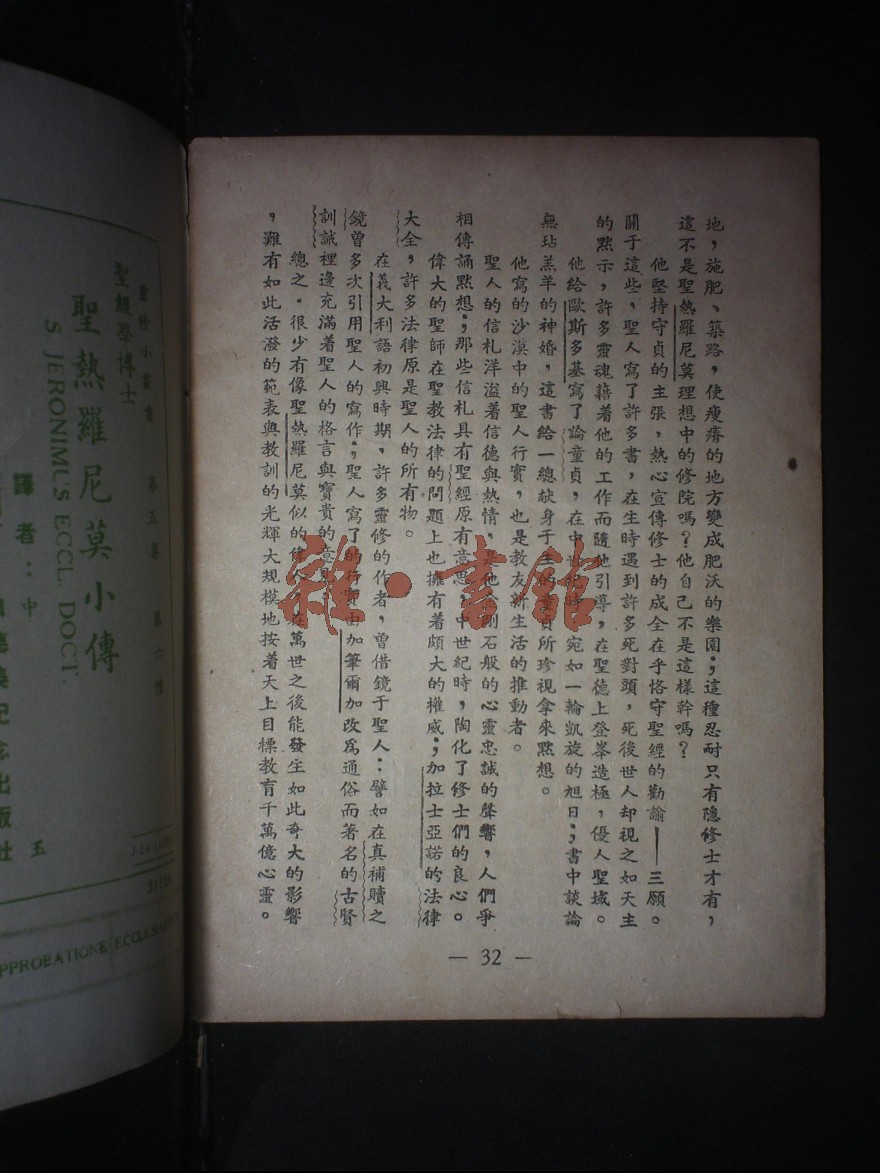 地，施肥、築路，使瘦瘠的地方變成肥沃的樂園；這種忍耐只有隱修士才有，
這不是聖熱羅尼莫理想中的修院嗎？他自己不是這樣幹嗎？
他堅持守貞的主張，熱心宣傳修士的成全在乎恪守聖經的勸諭——三願。
關于這些，聖人寫了許多書，在生時遇到許多死對頭，死後世人却視之如天主
的默示，許多靈魂藉着他的工作而隨他引導，在聖德上登峯造極，優入聖域。
他給歐斯多基寫了論童貞，在中世紀時，宛如一輪凱旋的旭日；書中談論
無玷羔羊的神婚，這書給一總献身于主的童貞所珍視拿來默想。
他寫的沙漠中的聖人行實，也是教友新生活的推動者。
聖人的信札洋溢着信德與熱情，是他金剛石般的心靈忠誠的聲響，人們爭
相傳誦默想；那些信札具有聖經原有意思，中世紀時，陶化了修士們的良心。
偉大的聖師在聖教法律的問題上也擁有着頗大的權威；加拉士亞諾的法律
大全，許多法律原是聖人的所有物。
在義大利語初興時期，許多靈修的作者，曾借鏡于聖人：譬如在真補贖之
鏡曾多次引用聖人的寫作；聖人寫了的行實由加筆爾加改爲通俗而著名的古賢
訓誡裡邊充滿着聖人的格言與寶貴的意見。
總之，很少有像聖熱羅尼莫似的偉人，在萬世之後能發生如此奇大的影響
，難有如此活潑的範表與教訓的光輝大規模地按着天上目標教育千萬億心靈。
— 32 —
小叢書 第五集 第六種
聖經學博士
聖熱羅尼莫小傳
S JERONIMUS ECCL. DOCT.
譯者：中
出版社
APPROBATIONE ECCLESIASTICA
雜·書館